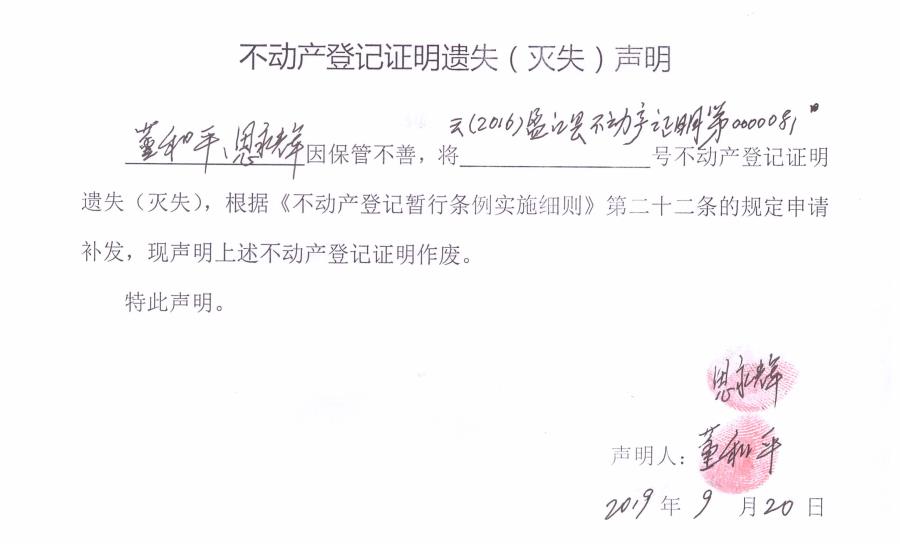 不动产登记证明遗失（灭失）声明
云(2016)盈江县不动产证明第0000081号
董和平、恩永辉因保管不善，将号不动产登记证明
遗失（灭失），根据《不动产登记暂行条例实施细则》第二十二条的规定申请
补发，现声明上述不动产登记证明作废。
特此声明。
恩永辉
声明人：董和平
2019年9月20日